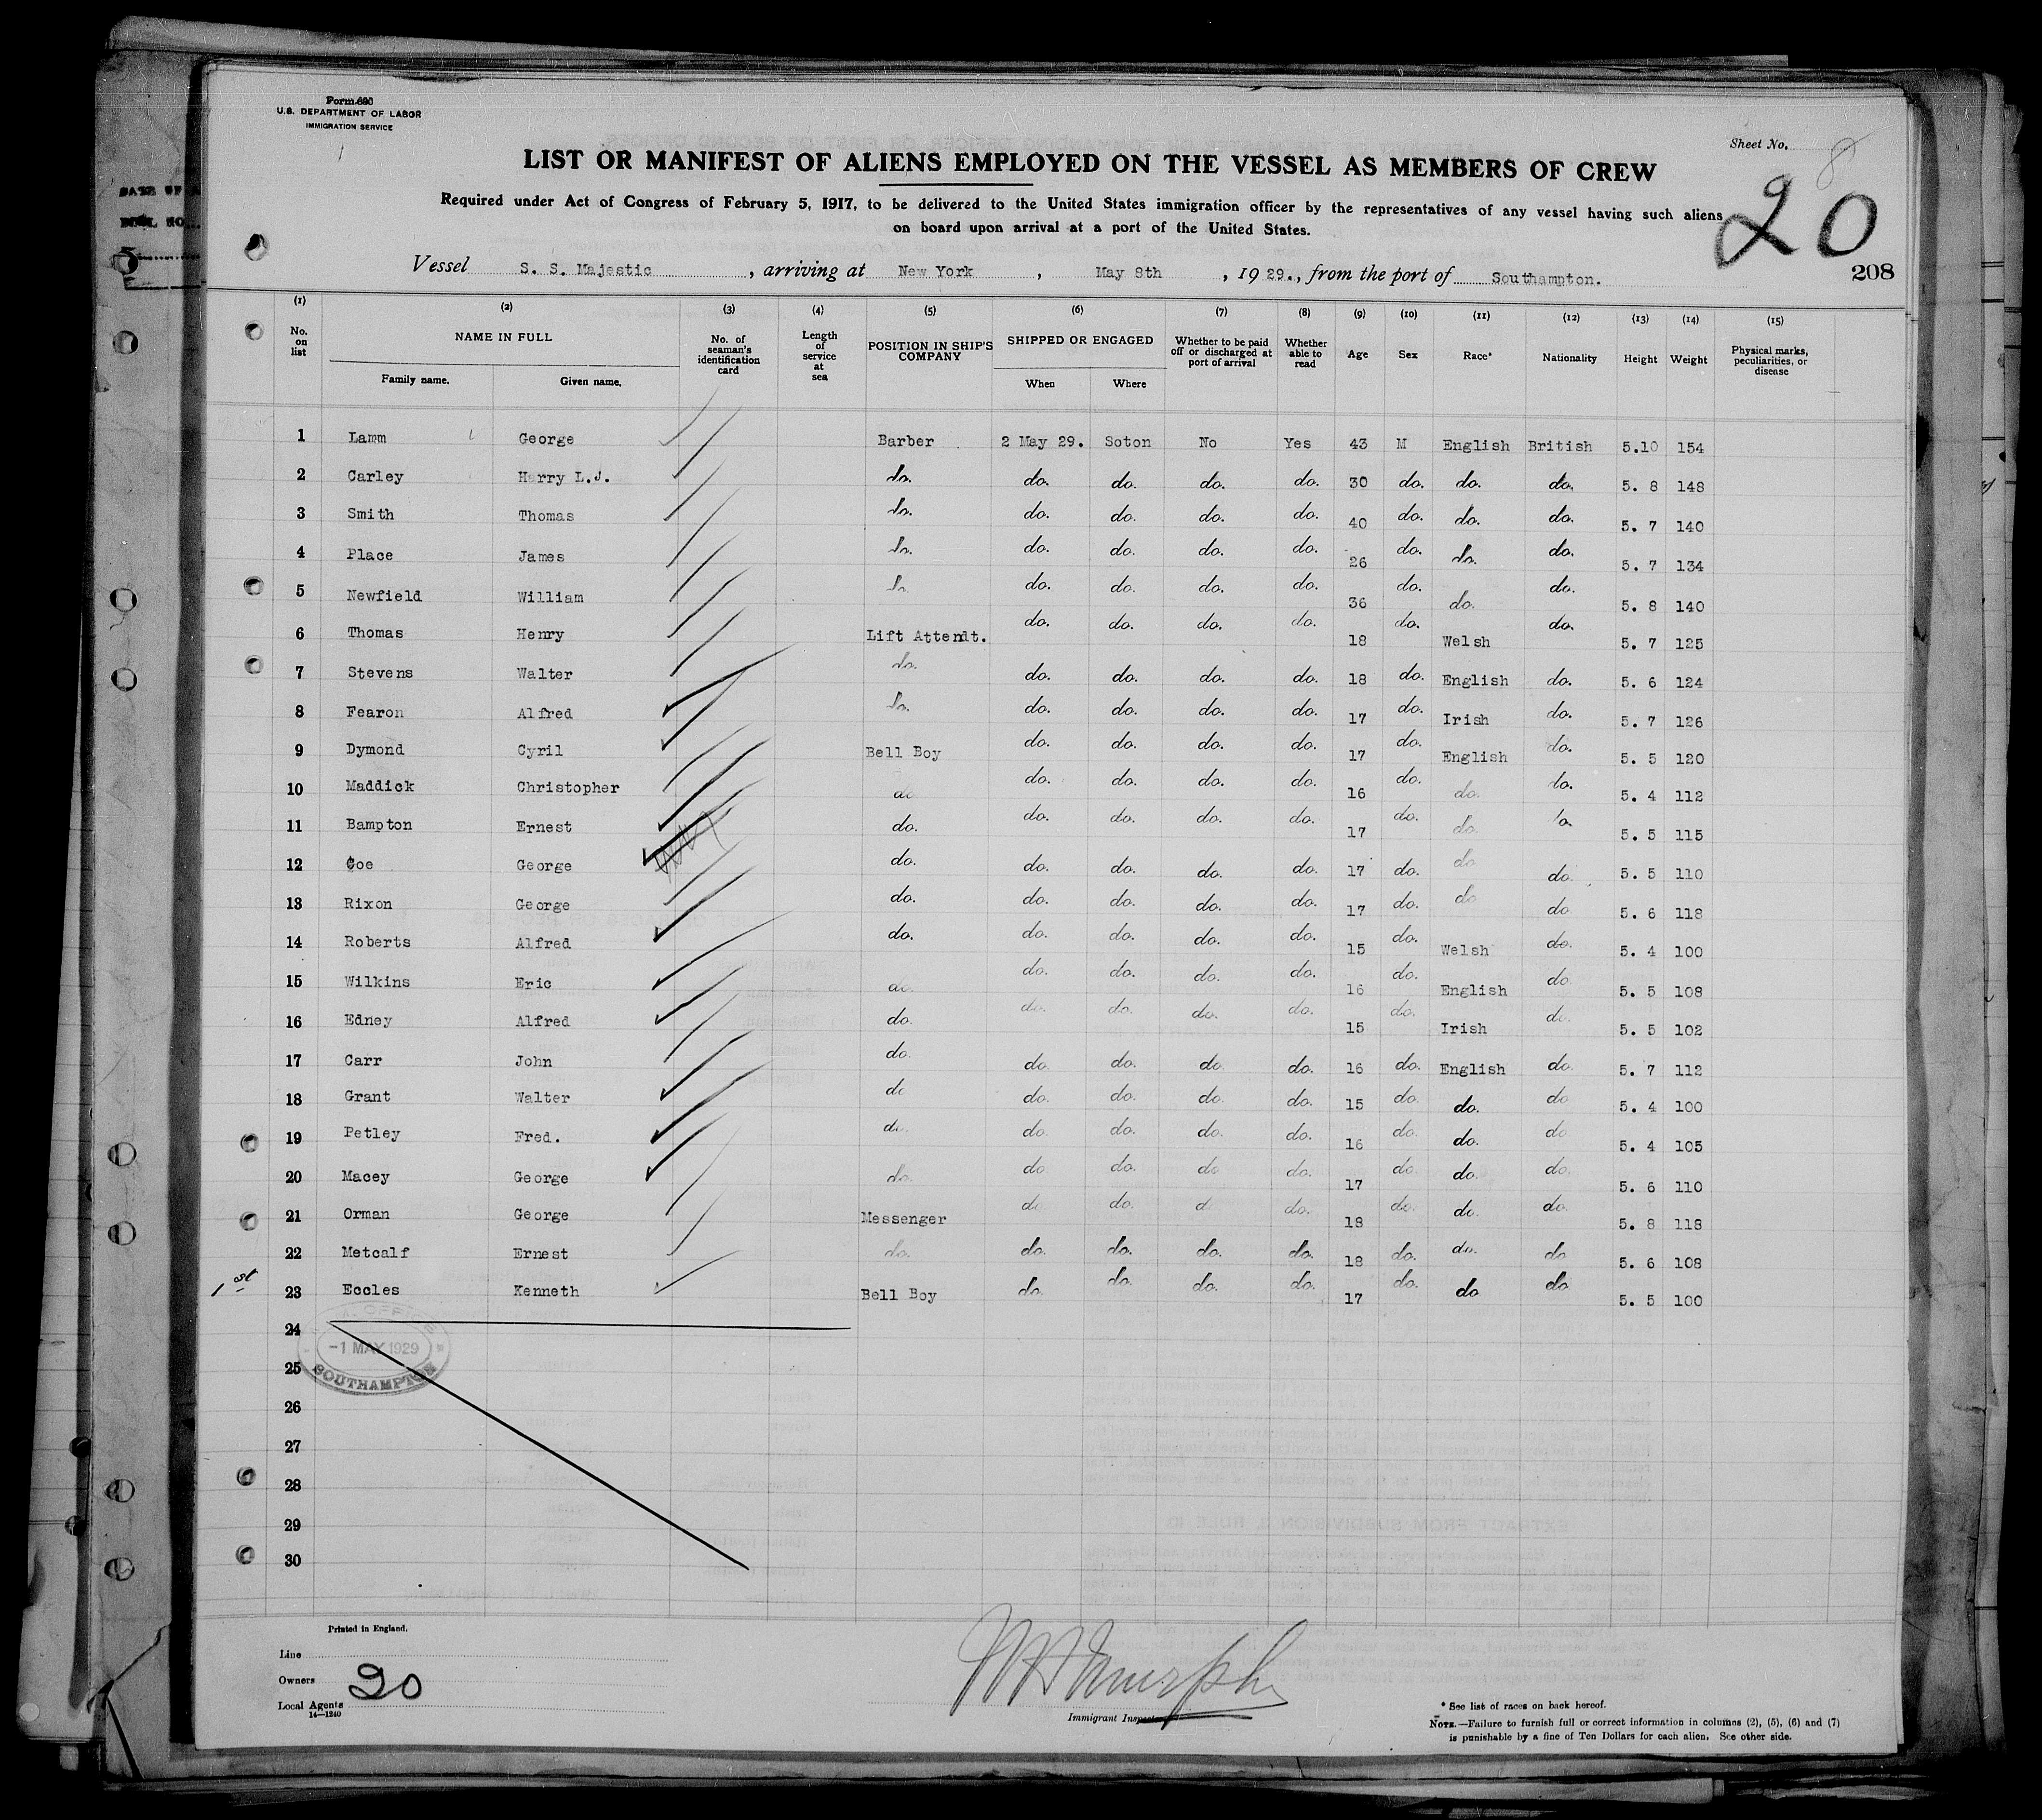 Form 680
U.S. DEPARTMENT OF LABOR
IMMIGRATION SERVICE
Sheet No. 8
LIST OR MANIFEST OF ALIENS EMPLOYED ON THE VESSEL AS MEMBERS OF CREW
20
Required under Act of Congress of February 5, 1917, to be delivered to the United States immigration officer by the representatives of any vessel having such aliens
on board upon arrival at a port of the United States.
Vessel S. S. Majestic, arriving at New York, May 8th, 1929., from the port of Southampton.
208
(1) (2) (3) (4) (5) (6) (7) (8) (9) (10) (11) (12) (13) (14) (15)
No. on list NAME IN FULL Family name. Given name. No. of seaman's identification card Length of service at sea POSITION IN SHIP'S COMPANY SHIPPED OR ENGAGED When Where Whether to be paid off or discharged at port of arrival Whether able to read Age Sex Race* Nationality Height Weight Physical marks, peculiarities, or disease
1 Lamm George Barber 2 May 29. Soton No Yes 43 M English British 5.10 154
2 Carley Harry L.J. do. do. do. do. do. 30 do. do. do. 5. 8 148
3 Smith Thomas do. do. do. do. do. 40 do. do. do. 5. 7 140
4 Place James do. do. do. do. do. 26 do. do. do. 5. 7 134
5 Newfield William do. do. do. do. do. 36 do. do. do. 5. 8 140
6 Thomas Henry Lift Attendt. do. do. do. do. 18 do. Welsh do. 5. 7 125
7 Stevens Walter do. do. do. do. do. 18 do. English do. 5. 6 124
8 Fearon Alfred do. do. do. do. do. 17 do. Irish do. 5. 7 126
9 Dymond Cyril Bell Boy do. do. do. do. 17 do. English do. 5. 5 120
10 Maddick Christopher do do. do. do. do. 16 do. do. do. 5. 4 112
11 Bampton Ernest do. do. do. do. do. 17 do. do. do. 5. 5 115
12 Coe George do. do. do. do. do. 17 do. do do. 5. 5 110
13 Rixon George do. do. do. do. do. 17 do. do do 5. 6 118
14 Roberts Alfred do. do. do. do. do. 15 do. Welsh do. 5. 4 100
15 Wilkins Eric do. do. do. do. do. 16 do. English do 5. 5 108
16 Edney Alfred do. do. do. do. do. 15 do. Irish do. 5. 5 102
17 Carr John do. do. do. do. do. 16 do. English do. 5. 7 112
18 Grant Walter do do. do. do. do. 15 do. do. do 5. 4 100
19 Petley Fred. do. do. do. do. do. 16 do. do. do 5. 4 105
20 Macey George do. do do. do do. 17 do. do. do. 5. 6 110
21 Orman George Messenger do do. d do. 18 do. do. do. 5. 8 118
22 Metcalf Ernest do. do. do. do. do. 18 do. do. do 5. 6 108
1st 23 Eccles Kenneth Bell Boy do. do. do. do. 17 do. do do 5. 5 100
24
25
26
27
28
29
30
OFFICE
-1 MAY 1929
SOUTHAMPTON
Printed in England.
Line
Owners 20
Local Agents
14—1240
Immigrant Inspector
* See list of races on back hereof.
NOTE.—Failure to furnish full or correct information in columns (2), (5), (6) and (7)
is punishable by a fine of Ten Dollars for each alien. See other side.